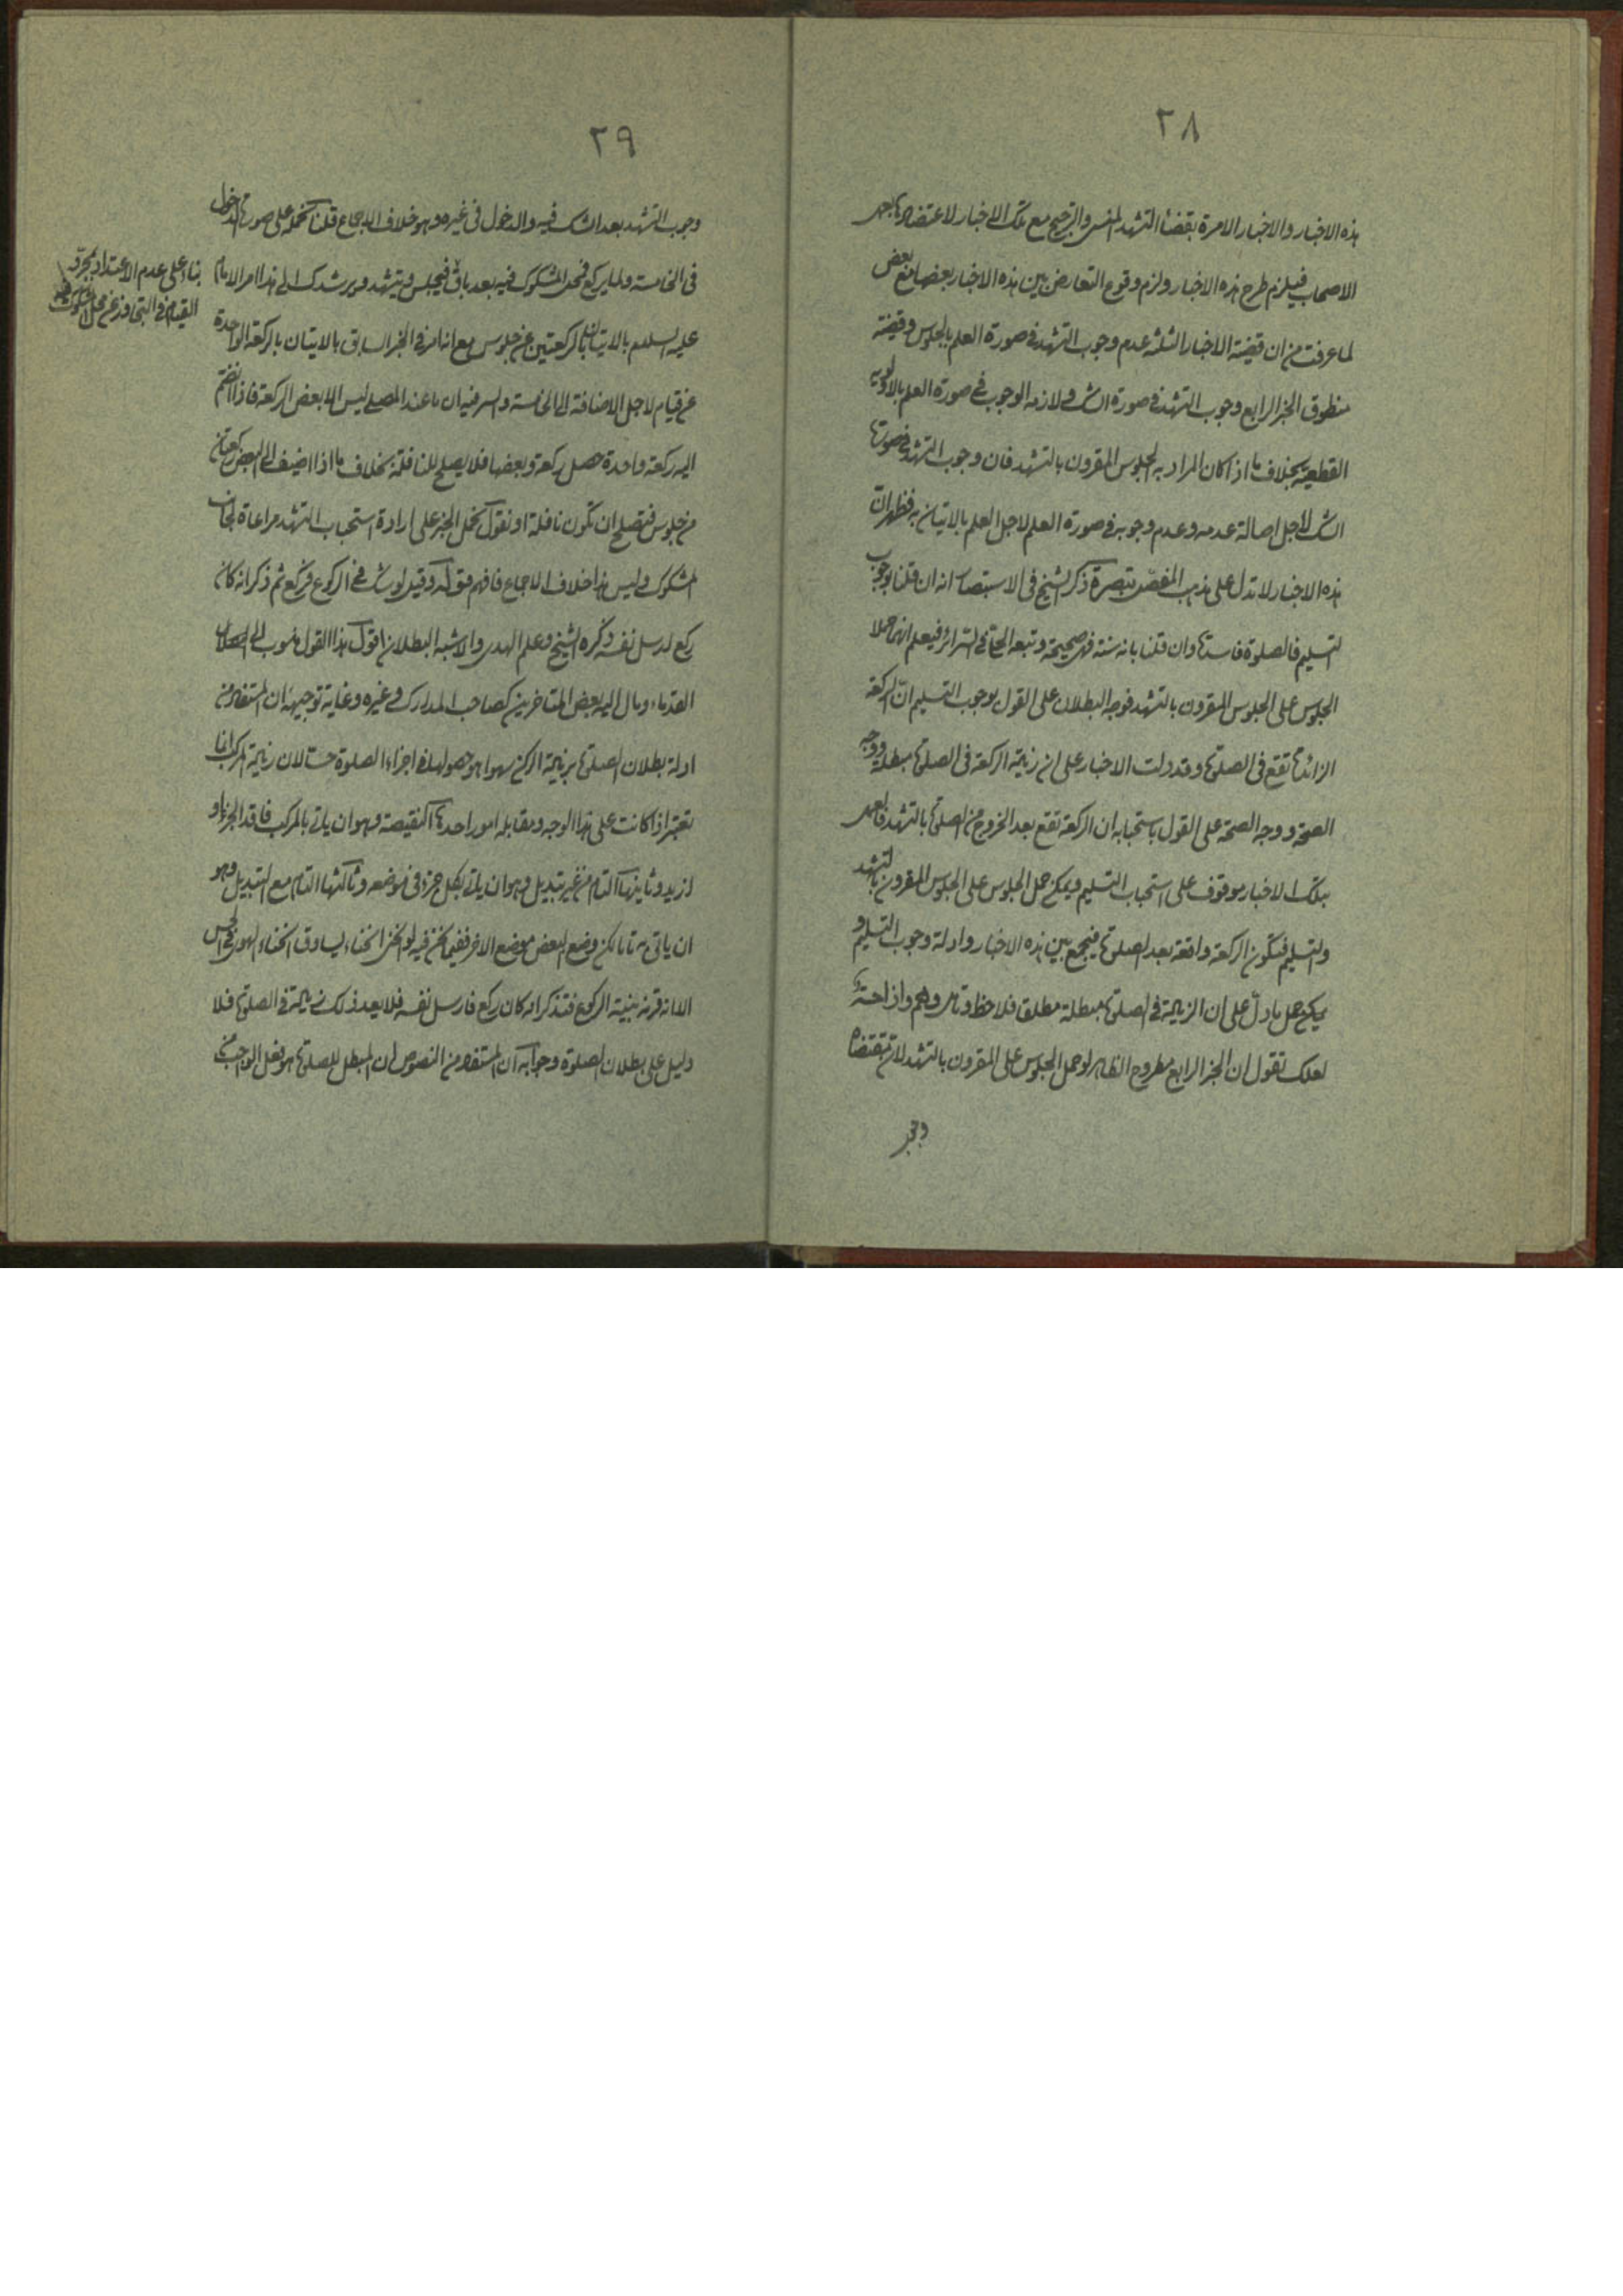 ٢٨
هذه الاخبار والاخبار الامرة بقضاء التشهد المنسى والترجيح مع تلك الاخبار لاعتضادها بعمل
الاصحاب فيلزم طرح هذه الاخبار ولزم وقوع التعارض بين هذه الاخبار بعضها مع بعض
لما عرفت من ان قضية الاخبار الثلثة عدم وجوب التشهد فى صورة العلم بالجلوس وقضية
منطوق الخبر الرابع وجوب التشهد فى صورة الشك ولازمه الوجوب فى صورة العلم بالاولوية
القطعية بخلاف ما اذا كان المراد به الجلوس المقرون بالتشهد فان وجوب التشهد فى صورة
الشك لاجل اصالة عدمه وعدم وجوبه فى صورة العلم لاجل العلم بالاتيان به فظهر ان
هذه الاخبار لا تدل على مذهب المفصل تبصرة ذكر الشيخ فى الاستبصار انه ان قلنا بوجوب
التسليم فالصلوة فاسدة وان قلنا بانه سنة فهى صحيحة وتبعه الحلى فى السرائر فيعلم انهما حملا
الجلوس على الجلوس المقرون بالتشهد فوجه البطلان على القول بوجوب التسليم ان الركعة
الزائدة تقع فى الصلوة وقد دلت الاخبار على ان زيادة الركعة فى الصلوة مبطلة ووجه
الصحة ووجه الصحة على القول باستحبابه ان الركعة تقع بعد الخروج من الصلوة بالتشهد فالعمل
بتلك الاخبار موقوف على استحباب التسليم ويمكن حمل الجلوس على الجلوس المقرون بالتشهد
والتسليم فتكون الركعة واقعة بعد الصلوة فيجمع بين هذه الاخبار وادلة وجوب التسليم و
يمكن حمل ما دل على ان الزيادة فى الصلوة مبطلة مطلق فلاحظ وتامل وافهم واذا احتة
لعلك تقول ان الخبر الرابع مطروح الظاهر لو حمل الجلوس على المقرون بالتشهد لان مقتضاه
وجو
٢٩
وجوب التشهد بعد الشك فيه والدخول فى غيره وهو خلاف الاجماع قلنا نحمله على صورة الدخول
فى الخامسة ولما يركع فمحل المشكوك فيه بعد باق فيجلس ويتشهد ويرشدك الى هذا امر الامام
عليه السلام بالاتيان بالركعتين عن جلوس مع انه امر فى الخبر السابق بالاتيان بالركعة الواحدة
عن قيام لاجل الاضافة الى الخامسة والسر فيه ان ما عند المصلى ليس الا بعض الركعة فاذا انضم
اليه ركعة واحدة حصل ركعة وبعضها فلا يصلح للنافلة بخلاف ما اذا اضيف الى البعض ركعتان
من جلوس فتصلح ان تكون نافلة او نقول نحمل الخبر على ارادة استحباب التشهد مراعاة لجانب
المشكوك وليس هذا خلاف الاجماع فافهم قوله وقيل لو شك فى الركوع فركع ثم ذكر انه كان
ركع ارسل نفسه ذكره الشيخ وعلم الهدى والاشبه البطلان اقول هذا القول منسوب الى
القدماء ومال اليه بعض المتاخرين كصاحب المدارك وغيره وغاية توجيهه ان المستفاد من
ادلة بطلان الصلوة بزيادة الركن سهوا هو حصولها فى اجزاء الصلوة حسا لان زيادة المركب انما
تعتبر اذا كانت على هذا الوجه ومقابله امور احدها النقيصة وهو ان ياتى بالمركب فاقد الجزء او
ازيد وثانيها التام من غير تبديل وهو ان ياتى بكل جزء فى موضعه وثالثها التام مع التبديل وهو
ان ياتى به تاما لكن وضع البعض موضع الاخر ففيما نحن فيه لو انحنى انحناء يساوق انحناء الهوى فى الحس
الا انه قرنه بنية الركوع فتذكر انه كان ركع فارسل نفسه فلا يعد ذلك زيادة فى الصلوة فلا
دليل على بطلان الصلوة وجوابه ان المستفاد من النصوص ان المبطل للصلوة هو فعل الواجب
بناء على عدم الاعتداد بمجرد
القيام فى التجاوز عن محل المشكوك فيه